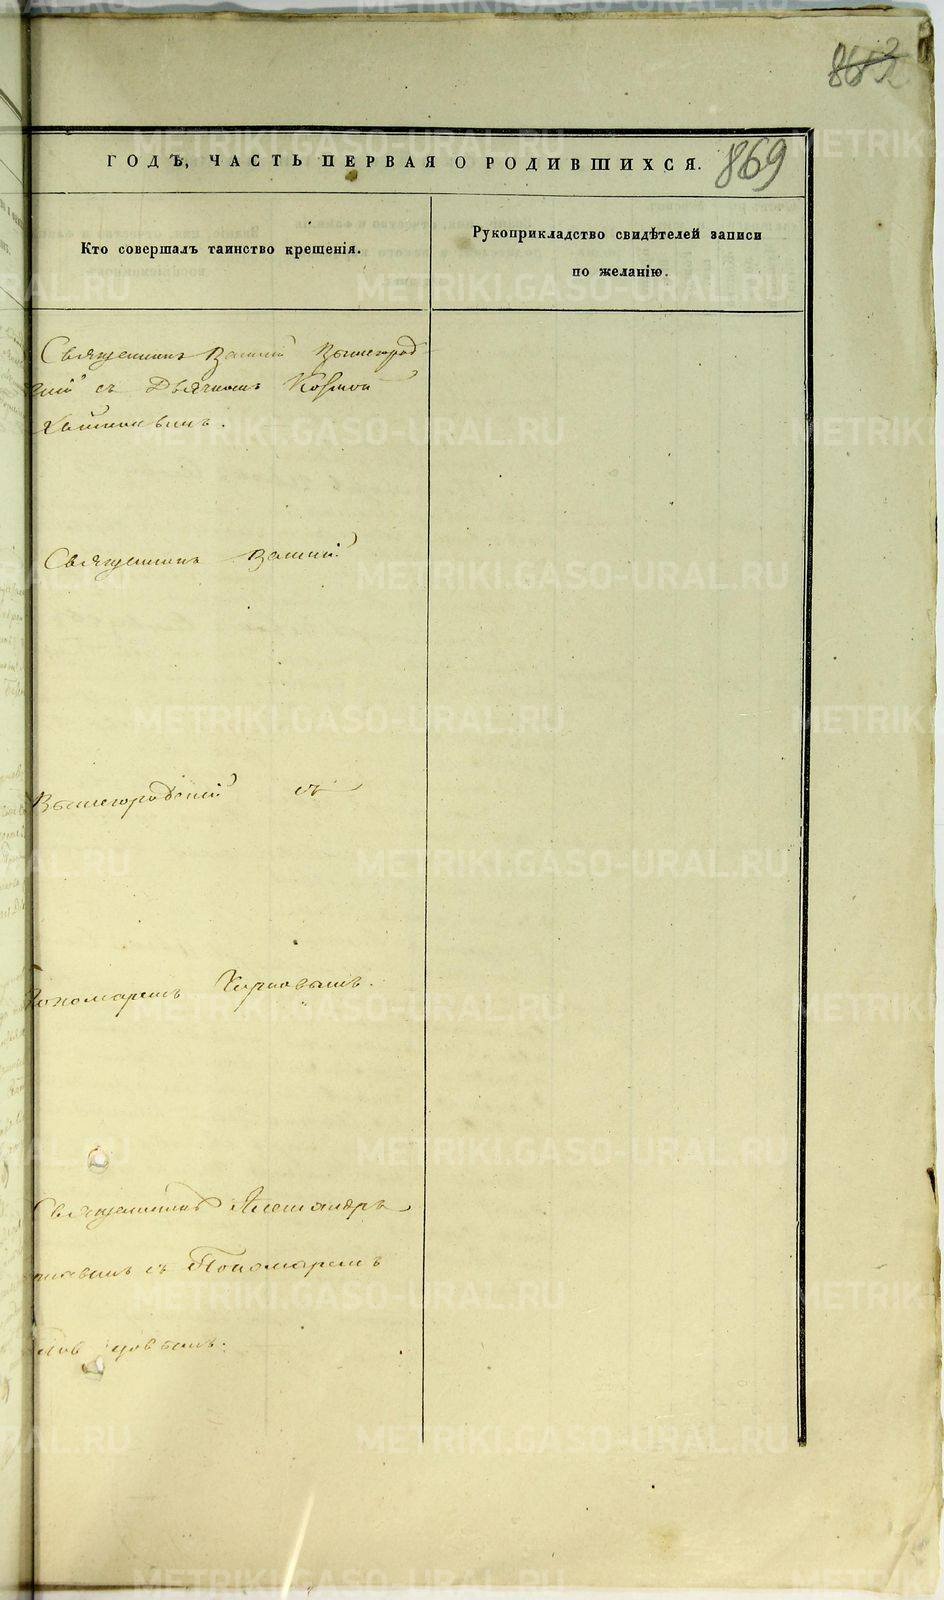 869
ГОДЪ, ЧАСТЬ ПЕРВАЯ О РОДИВШИХСЯ.
Кто совершалъ таинство крещенія.
Рукоприкладство свидѣтелей записи
по желанію.
Священникъ Вышегород
съ Дьячкомъ Козмой
Священникъ
Вышегородскій съ
Пономаремъ Карповымъ.
Священникъ Александръ
съ Пономаремъ
METRIKI.GASO-URAL.RU